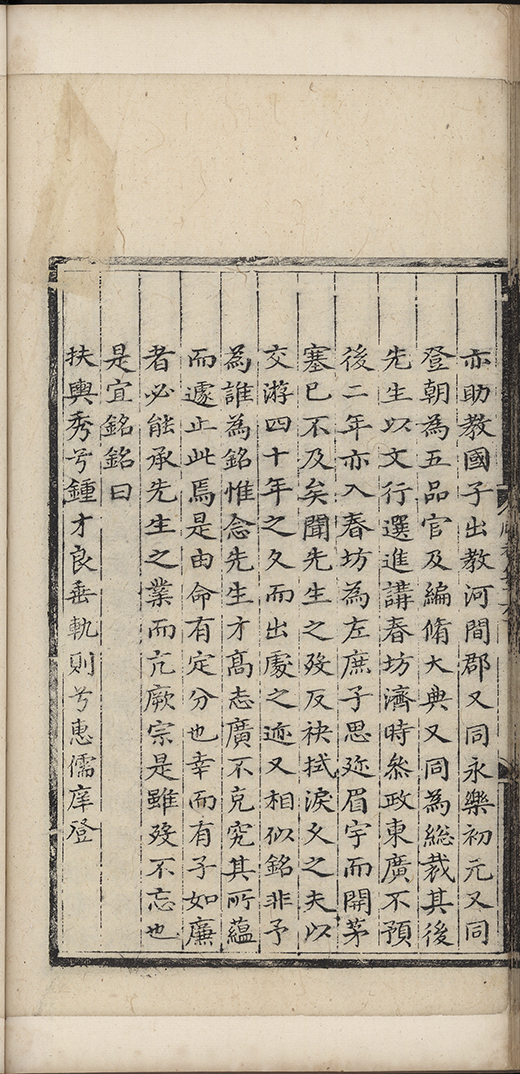 亦助教國子出教河間郡又同永樂初元又同
登朝為五品官及編脩大典又同為總裁其後
先生以文行選進講春坊濟時叅政東廣不預
後二年亦入春坊為左庶子思迩眉宇而開茅
塞已不及矣聞先生之歿反袂拭淚久之夫以
交游四十年之久而出處之迹又相似銘非予
為誰為銘惟念先生才髙志廣不克究其所蘊
而遽止此焉是由命有定分也幸而有子如廉
者必能承先生之業而亢厥宗是雖歿不忘也
是宜銘銘曰
扶輿秀兮鍾才良垂軌則兮惠儒庠登